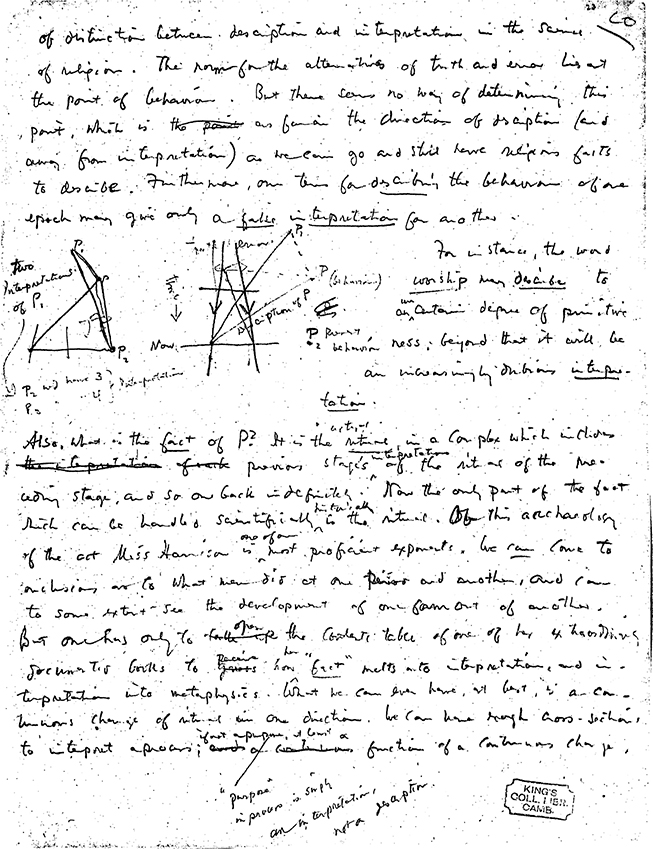 of distinction between description and interpretation, in the science
of religion. The norm for the alternatives of truth and error lies at
the point of behaviour. But there seems no way of determining this
point, which is the point as far in the direction of description (and
away from interpretation) as we can go and still have religious facts
to describe. Furthermore, our terms for describing the behaviour of one
epoch may give only a false interpretation for another.
For instance, the word
worship may describe to
certain degree of primitive
ness; beyond that it will be
an increasingly dubious interpre-
tation.
two
Interpretations
of P1
P1
P
P2
P2 will have 3
P3 " 4
Interpretation
error
P1
Time
P (behaviour)
description of P
Now
P2
Point
behaviour
Also, what is the fact of P? It is the actual ritual, in a complex which includes
the interpretation of each previous stage's interpretation of the ritual of the pre-
ceding stage, and so on back indefinitely. Now the only part of the fact
which can be handled scientifically historically is the ritual. Of this archaeology
of the act Miss Harrison is one of our most proficient exponents. We can come to
conclusions as to what men did at one period and another, and can
to some extent see the development of one form out of another.
But one has only to open the contents table of one of her extraordinary
documented books to perceive how her "fact" melts into interpretation, and in-
terpretation into metaphysics. What we can ever have, at best, is a con-
tinuous change of ritual in one direction. We can have rough cross-sections
to interpret a process; a continuous function of a continuous change.
"purpose"
in process is simply
an interpretation,
not a description.
KING'S
COLL. LIBR.
CAMB.